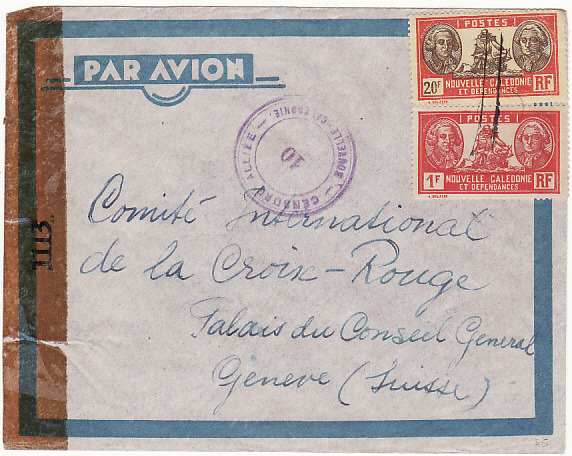 PAR AVION
POSTES
20F NOUVELLE CALEDONIE RF
ET DEPENDANCES
POSTES
1F NOUVELLE CALEDONIE RF
ET DEPENDANCES
CENSURE ALLIEE
10
1113
Comité International
de la Croix-Rouge
Palais du Conseil General
Genève (Suisse)